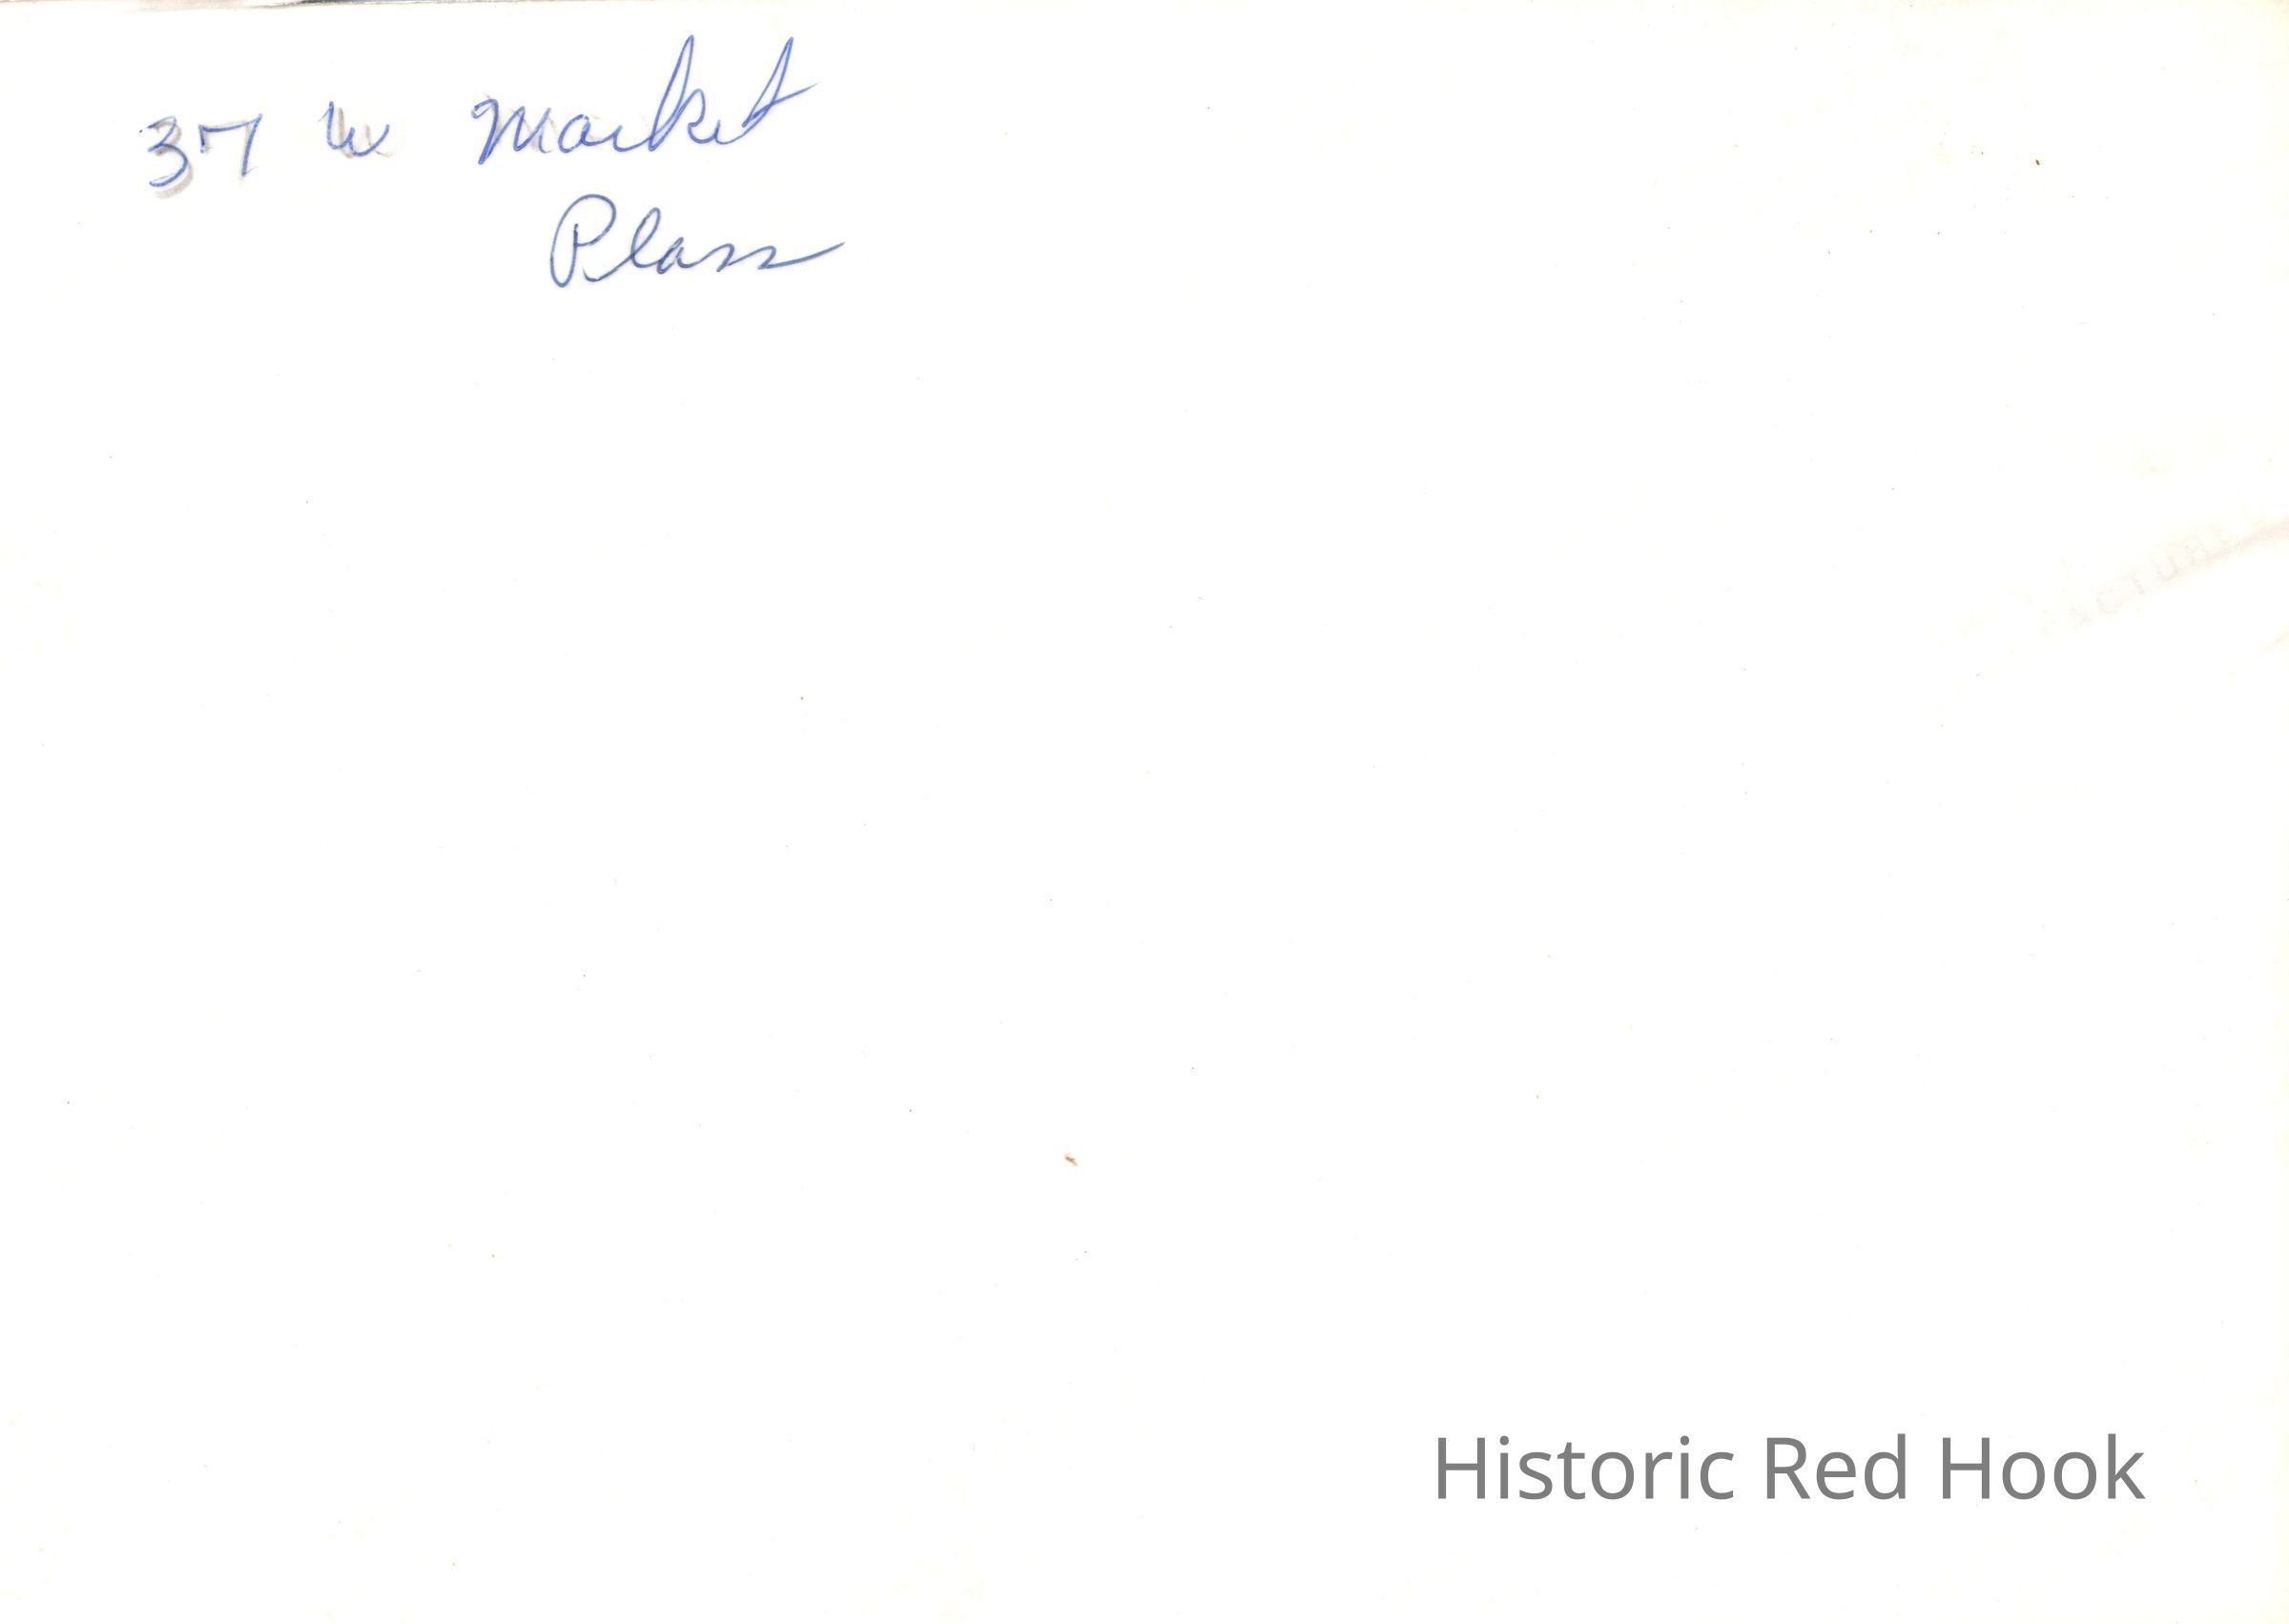 37 W Market
Plass
Historic Red Hook